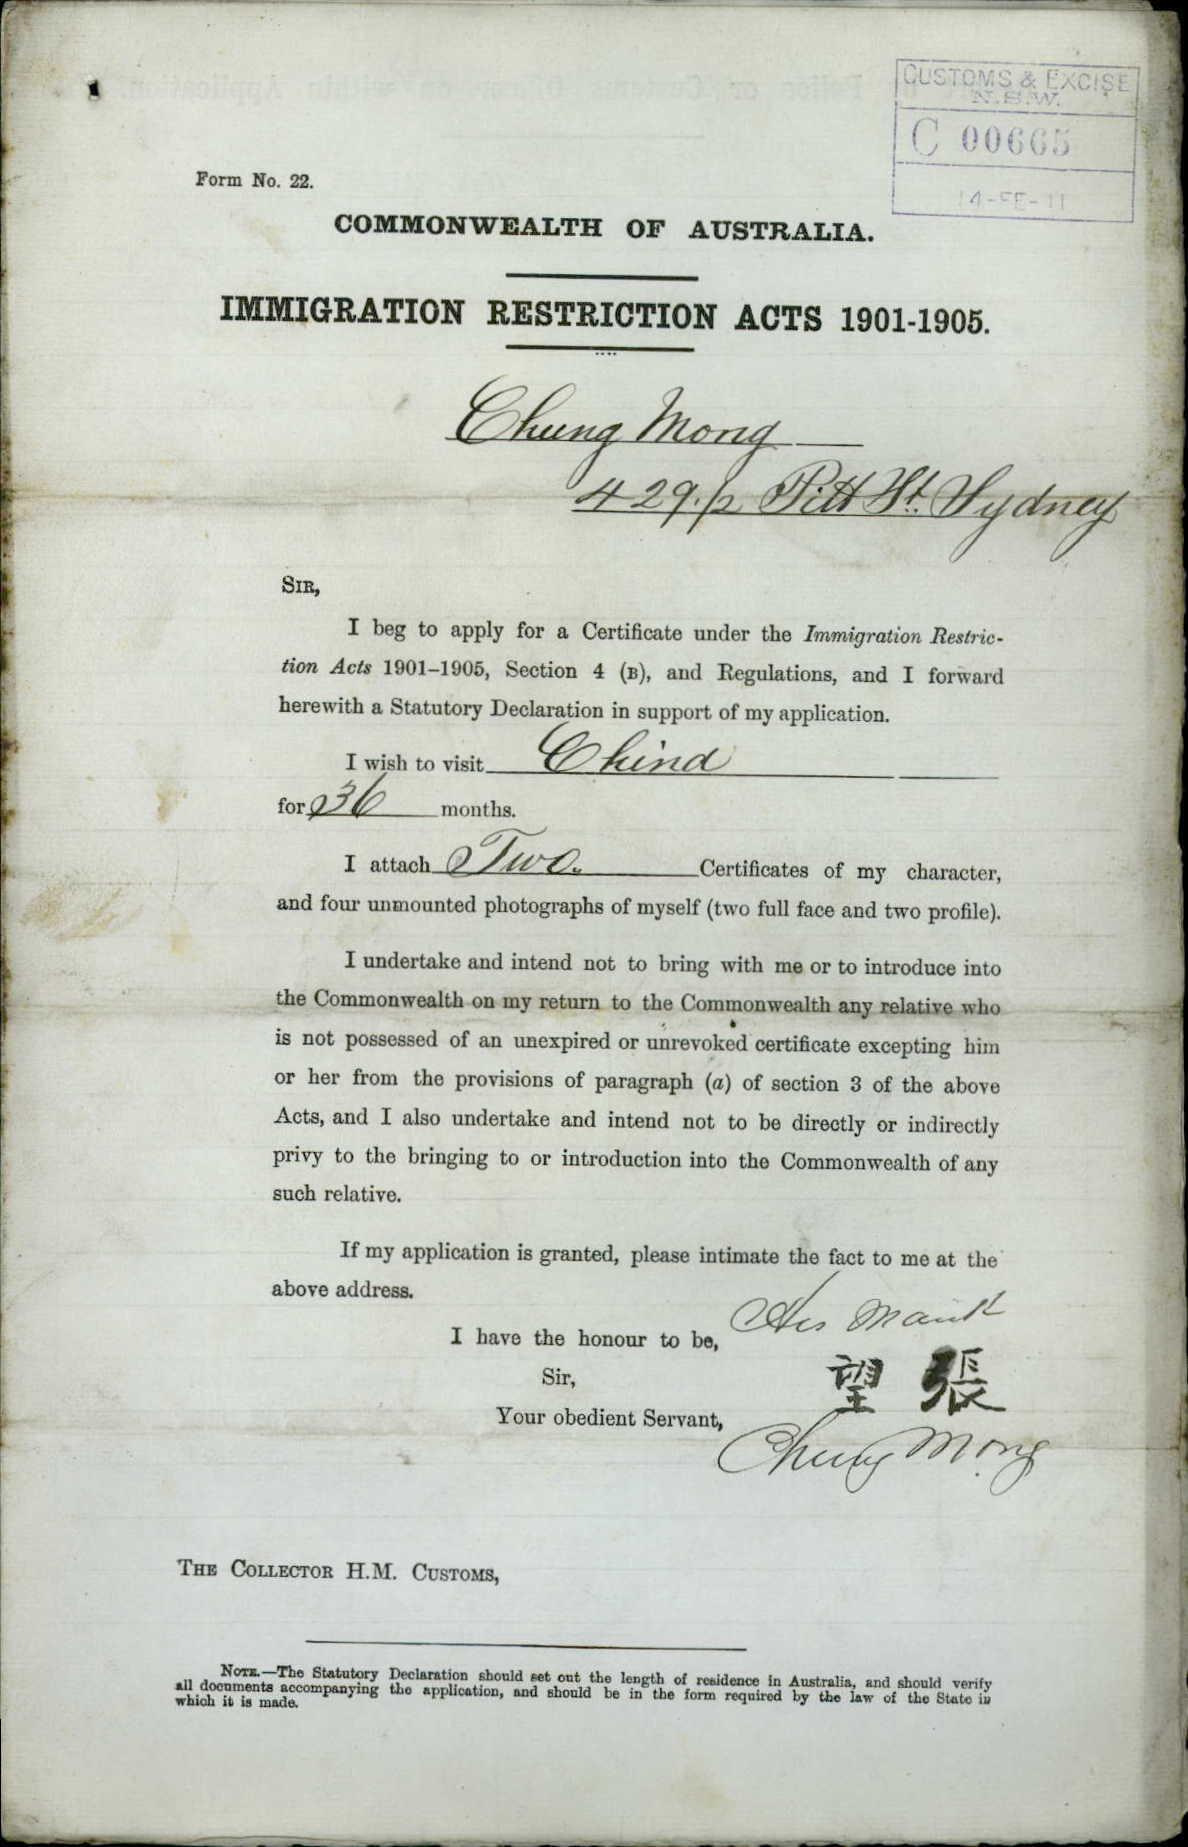 CUSTOMS & EXCISE
N.S.W.
C 00665
14-FE-11
Form No. 22.
COMMONWEALTH OF AUSTRALIA.
IMMIGRATION RESTRICTION ACTS 1901-1905.
Chung Mong
429 1/2 Pitt St. Sydney
SIR,
I beg to apply for a Certificate under the Immigration Restric-
tion Acts 1901–1905, Section 4 (B), and Regulations, and I forward
herewith a Statutory Declaration in support of my application.
I wish to visit China
for 36 months.
I attach Two. Certificates of my character,
and four unmounted photographs of myself (two full face and two profile).
I undertake and intend not to bring with me or to introduce into
the Commonwealth on my return to the Commonwealth any relative who
is not possessed of an unexpired or unrevoked certificate excepting him
or her from the provisions of paragraph (a) of section 3 of the above
Acts, and I also undertake and intend not to be directly or indirectly
privy to the bringing to or introduction into the Commonwealth of any
such relative.
If my application is granted, please intimate the fact to me at the
above address.
His Mark
I have the honour to be,
Sir,
望 張
Your obedient Servant,
Chung Mong
THE COLLECTOR H.M. CUSTOMS,
NOTE.—The Statutory Declaration should set out the length of residence in Australia, and should verify
all documents accompanying the application, and should be in the form required by the law of the State in
which it is made.